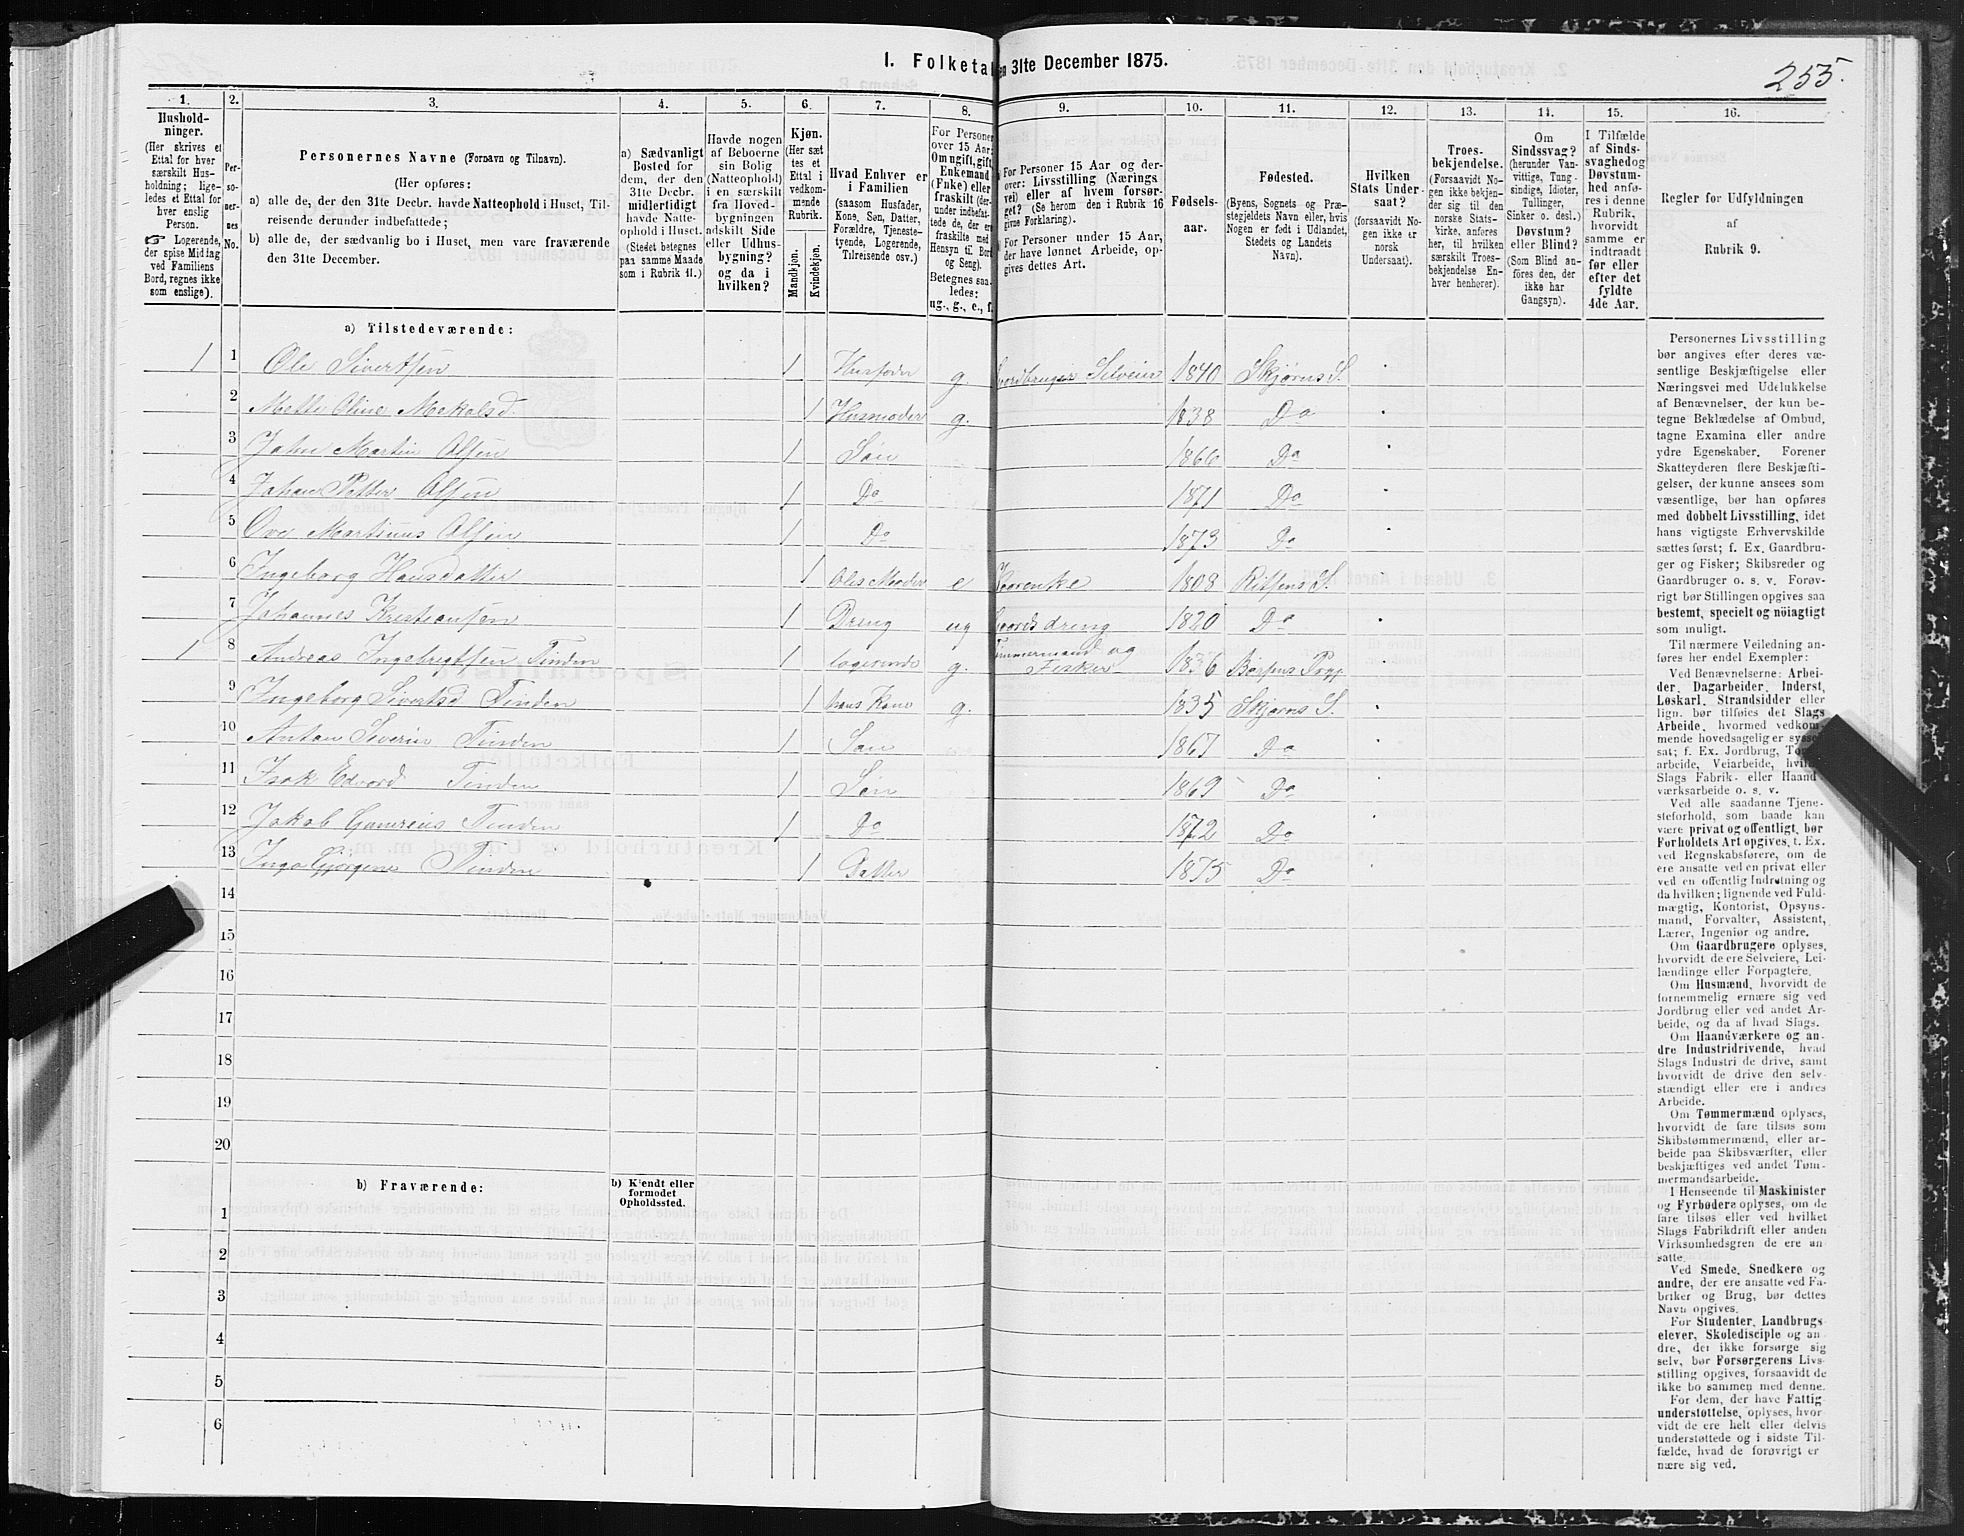 1. Folketal den 31te December 1875.
255.
1. 2. 3. 4. 5. 6. 7. 8. 9. 10. 11. 12. 13. 14. 15. 16.
Hushold-
ninger.
(Her skrives et
Ettal for hver
særskilt Hus-
holdning; lige-
ledes et Ettal for
hver enslig
Person.
☞ Logerende,
der spise Middag
ved Familiens
Bord, regnes ikke
som enslige).
Per-
so-
ner-
nes
No.
Personernes Navne (Fornavn og Tilnavn).
(Her opføres:
a) alle de, der den 31te Decbr. havde Natteophold i Huset, Til-
reisende derunder indbefattede;
b) alle de, der sædvanlig bo i Huset, men vare fraværende
den 31te December.
a) Sædvanligt
Bosted for
dem, der den
31te Decbr.
midlertidigt
havde Natte-
ophold i Huset.
(Stedet betegnes
paa samme Maade
som i Rubrik 11.)
Havde nogen
af Beboerne
sin Bolig
(Natteophold)
i en særskilt
fra Hoved-
bygningen
adskilt Side
eller Udhus-
bygning?
og da i
hvilken?
Kjøn.
(Her sæt
tes et
Ettal i
vedkom-
mende
Rubrik.
Mandkjøn.
Kvindekjøn.
Hvad Enhver er
i Familien
(saasom Husfader,
Kone, Søn, Datter,
Forældre, Tjeneste-
tyende, Logerende,
Tilreisende osv.)
For Personer
over 15 Aar:
Om ugift, gift,
Enkemand
(Enke) eller
fraskilt (der-
under indbefat-
tede de, der ere
fraskilte med
Hensyn til Bord
og Seng).
Betegnes saa-
ledes:
ug., g., e., f.
For Personer 15 Aar og der-
over: Livsstilling (Nærings
vei) eller af hvem forsør-
get? (Se herom den i Rubrik 16
givne Forklaring).
For Personer under 15 Aar,
der have lønnet Arbeide, op-
gives dettes Art.
Fødsels-
aar.
Fødested.
(Byens, Sognets og Præ-
stegjeldets Navn eller, hvis
Nogen er født i Udlandet,
Stedets og Landets
Navn).
Hvilken
Stats Under-
saat?
(forsaavidt No-
gen ikke er
norsk
Undersaat).
Troes-
bekjendelse.
(Forsaavidt No-
gen ikke bekjen-
der sig til den
norske Stats-
kirke, anføres
her, til hvilken
særskilt Troes-
bekjendelse En-
hver henhører).
Om
Sindssvag?
(herunder Van-
vittige, Tung-
sindige, Idioter,
Tullinger,
Sinker o. desl.)
Døvstum?
eller Blind?
(Som Blind an-
føres den, der
ikke har
Gangsyn).
I Tilfælde
af Sinds-
svaghed og
Døvstum-
hed anfø-
res i denne
Rubrik,
hvorvidt
samme er
indtraadt
før eller
efter det
fyldte
4de Aar.
Regler for Udfyldningen
af
Rubrik 9.
a) Tilstedeværende:
1 1 Ole Sivertsen 1 Husfader g. Gaardbruger Selveier 1840 Skjørns S.
2 Mette Oline Mekalsd. 1 Husmoder g. 1838 Do
3 John Martin Olsen 1 Søn 1866 Do
4 Johan Petter Olsen 1 Do 1871 Do
5 Ove Martinus Olsen 1 Do 1873 Do
6 Ingeborg Hansdatter 1 Oles Moder e 1808 Rissens S.
7 Johannes Kristiansen 1 Dreng ug Gaardsdreng 1820 Do
1 8 Andreas Ingebrigtsen Tinden 1 logerende g. Tømmermand og Fisker 1836
9 Ingeborg Sivertsd Tinden 1 hans Kone g. 1835 Skjørns S.
10 Anton Severin Tinden 1 Søn 1867 Do
11 Isak Edvard Tinden 1 Søn 1869 Do
12 Jakob Tinden 1 Do 1872 Do
13 Tinden 1 Datter 1875 Do
14
15
16
17
18
19
20
b) Fraværende:
b) Kjendt eller
formodet
Opholdssted.
1
2
3
4
5
6
Personernes Livsstilling
bør angives efter deres væ-
sentlige Beskjæftigelse eller
Næringsvei med Udelukkelse
af Benævnelser, der kun be-
tegne Beklædelse af Ombud,
tagne Examina eller andre
ydre Egenskaber. Forener
Skatteyderen flere Beskjæfti-
gelser, der kunne ansees som
væsentlige, bør han opføres
med dobbelt Livsstilling, idet
hans vigtigste Erhvervskilde
sættes først; f. Ex. Gaardbru-
ger og Fisker; Skibsreder og
Gaardbruger o. s. v. Forøv-
rigt bør Stillingen opgives saa
bestemt, specielt og nöiagtigt
som muligt.
Til nærmere Veiledning an-
føres her endel Exempler:
Ved Benævnelserne: Arbei-
der, Dagarbeider, Inderst,
Løskarl, Strandsidder eller
lign. bør tilføies det Slags
Arbeide, hvormed vedkom-
mende hovedsagelig er syssel
sat; f. Ex. Jordbrug, Tom
arbeide, Veiarbeide, hvilk
Slags Fabrik- eller Haand
værksarbeide o. s. v.
Ved alle saadanne Tjene-
steforhold, som baade kan
være privat og offentligt, bør
Forholdets Art opgives, t. Ex.
ved Regnskabsførere, om de
ere ansatte ved en privat eller
ved en offentlig Indretning og
da hvilken; lignende ved Fuld-
mægtig, Kontorist, Opsyns-
mand, Forvalter, Assistent,
Lærer, Ingeniør og andre.
Om Gaardbrugere oplyses,
hvorvidt de ere Selveiere, Lei-
lændinge eller Forpagtere.
Om Husmænd, hvorvidt de
fornemmelig ernære sig ved
Jordbrug eller ved andet Ar-
beide, og da af hvad Slags.
Om Haandværkere og an-
dre Industridrivende, hvad
Slags Industri de drive, samt
hvorvidt de drive den selv-
stændigt eller ere i andres
Arbeide.
Om Tømmermænd oplyses,
hvorvidt de fare tilsøs som
Skibstømmermænd, eller ar-
beide paa Skibsværfter, eller
beskjæftiges ved andet Tøm-
mermandsarbeide.
I Henseende til Maskinister
og Fyrbødere oplyses, om de
fare tilsøs eller ved hvilket
Slags Fabrikdrift eller anden
Virksomhedsgren de ere an-
satte.
Ved Smede, Snedkere og
andre, der ere ansatte ved Fa-
briker og Brug, bør dettes
Navn opgives.
For Studenter, Landbrugs-
elever, Skoledisciple og an
dre, der ikke forsørge sig
selv, bør Forsørgerens Livs-
stilling opgives, forsaavidt de
ikke bo sammen med denne.
For dem, der have Fattig-
understøttelse, oplyses, hvor-
vidt de ere helt eller delvis
understøttede og i sidste Til-
fælde, hvad de forøvrigt er
nære sig ved.